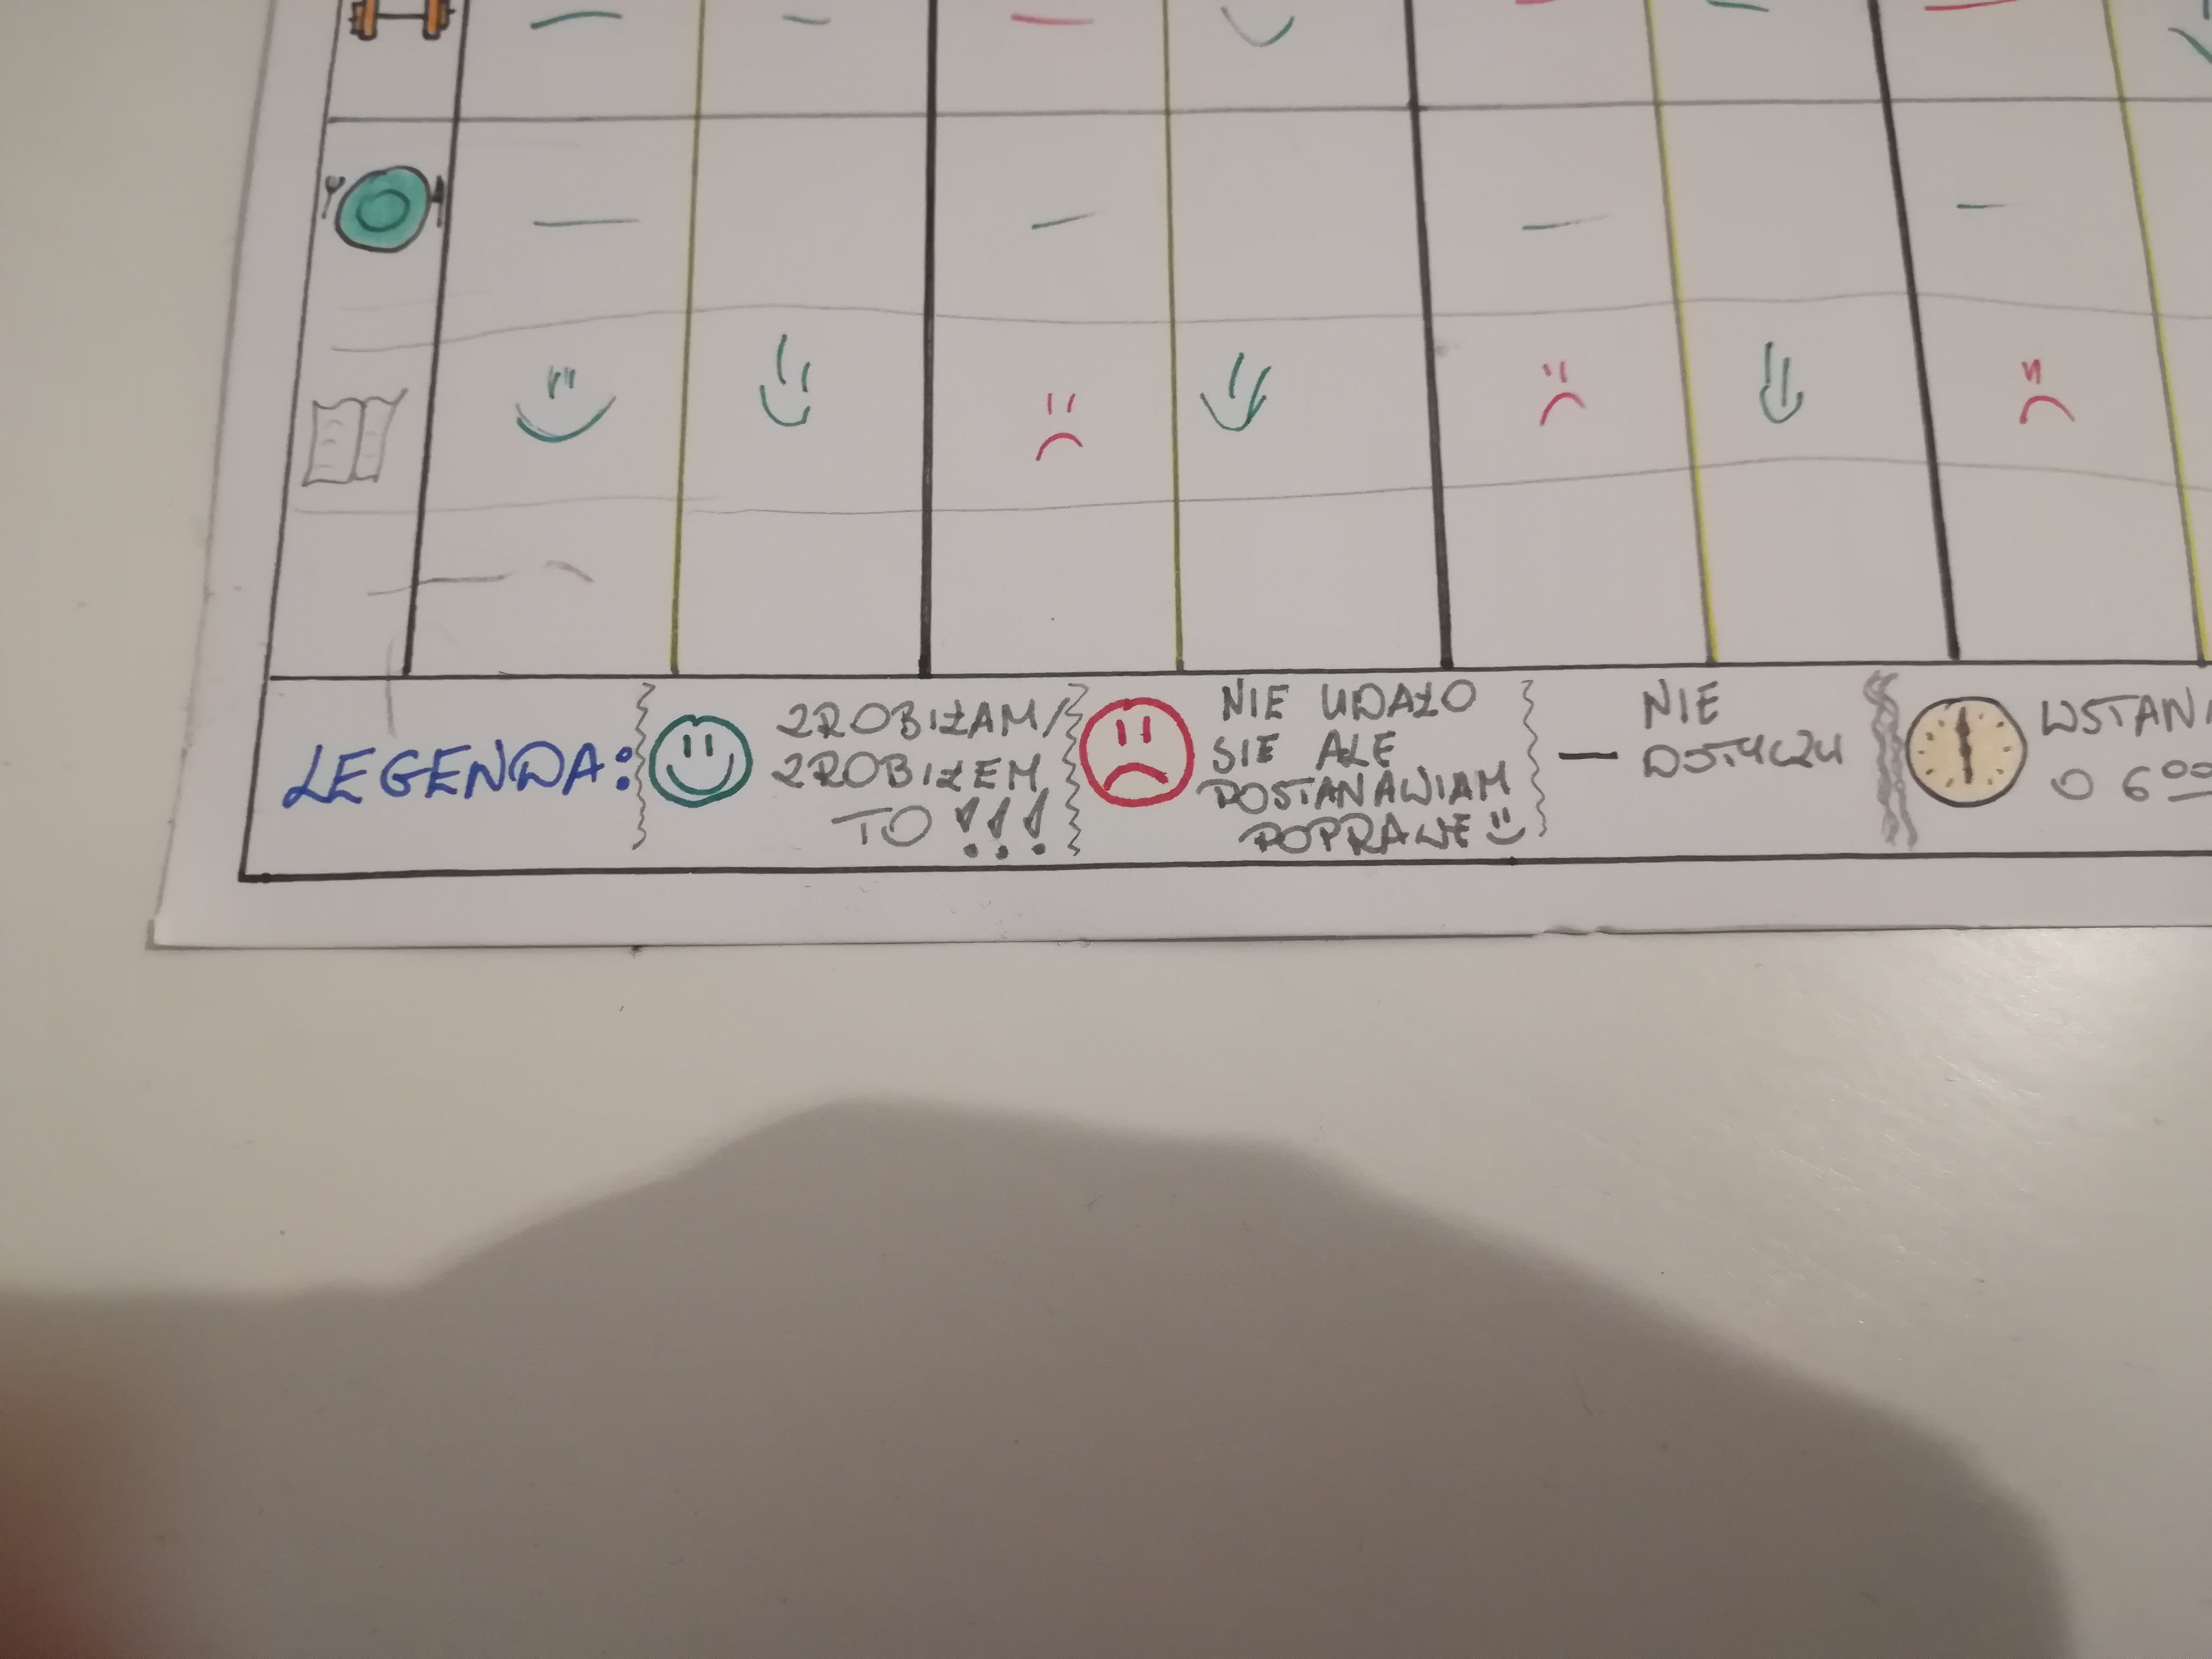 LEGENDA:
ZROBIŁAM/
ZROBIŁEM
TO !!!
NIE UDAŁO
SIE ALE
POSTANAWIAM
POPRAWE
— NIE
DOTYCZY
WSTAN
O 6⁰⁰